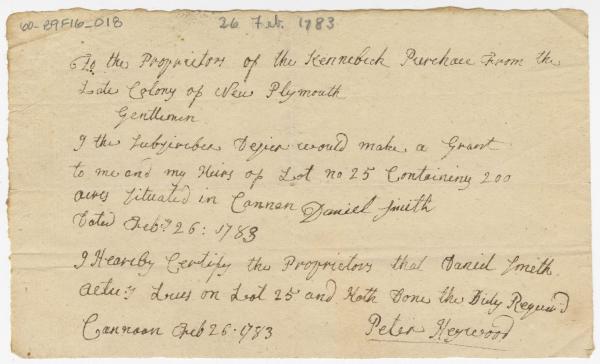 60-89F16-018
26 Feb. 1783
To the Proprietors of the Kennebeck Purchace From the
Late Colony of New Plymouth
Gentlemen
I the Subscriber Desier would make a Grant
to me and my Heirs of Lot no 25 Containing 200
acres Situated in Cannan Daniel Smith
Dated Feby 26: 1783
I Heareby Certify the Proprietors that Daniel Smith
Lives on Lot 25 and Hath Done the Duty Requier'd
Cannaan Feb 26. 1783
Peter Heywood